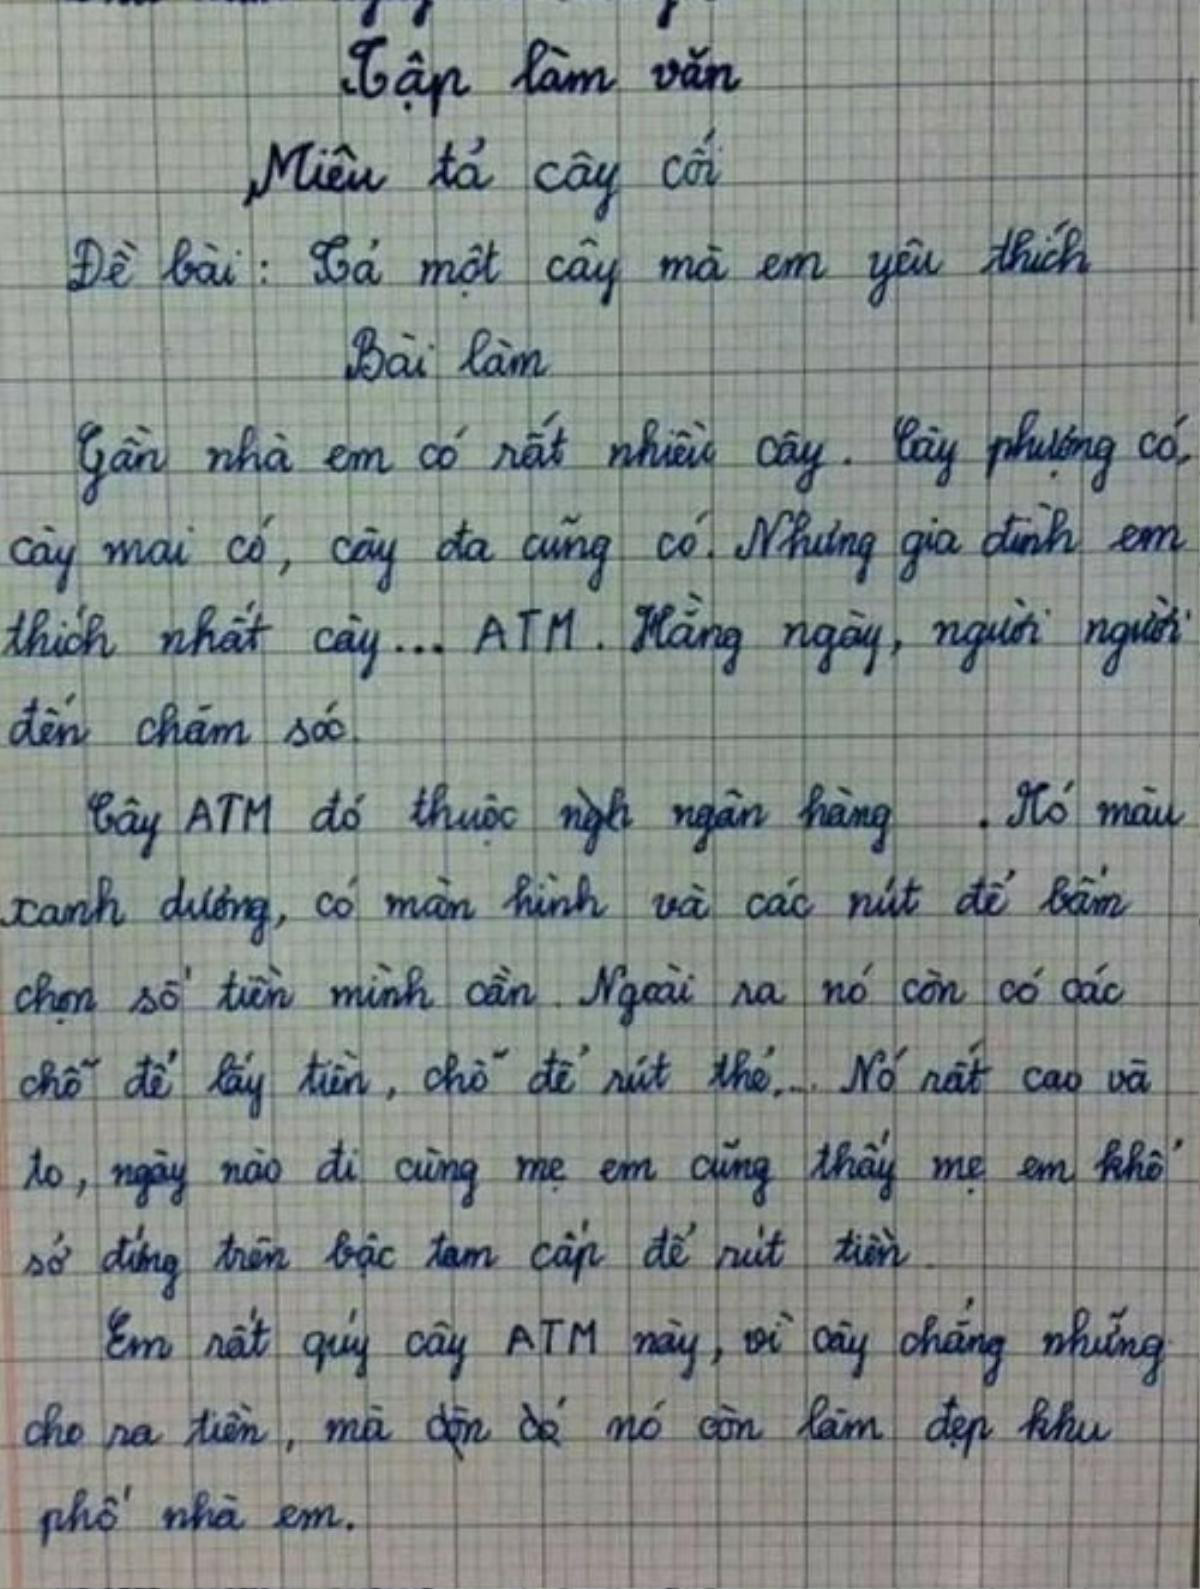 Tập làm văn
Miêu tả cây cối
Đề bài: Tả một cây mà em yêu thích
Bài làm
Gần nhà em có rất nhiều cây. Cây phượng có,
cây mai có, cây đa cũng có. Nhưng gia đình em
thích nhất cây... ATM. Hằng ngày, người người
đến chăm sóc.
Cây ATM đó thuộc ngân hàng . Nó màu
xanh dương, có màn hình và các nút để bấm
chọn số tiền mình cần. Ngoài ra nó còn có các
chỗ để lấy tiền, chỗ để rút thẻ,... Nó rất cao và
to, ngày nào đi cùng mẹ em cũng thấy mẹ em khổ
sở đứng trên bậc tam cấp để rút tiền.
Em rất quý cây ATM này, vì cây chẳng những
cho ra tiền, mà nó còn làm đẹp khu
phố nhà em.